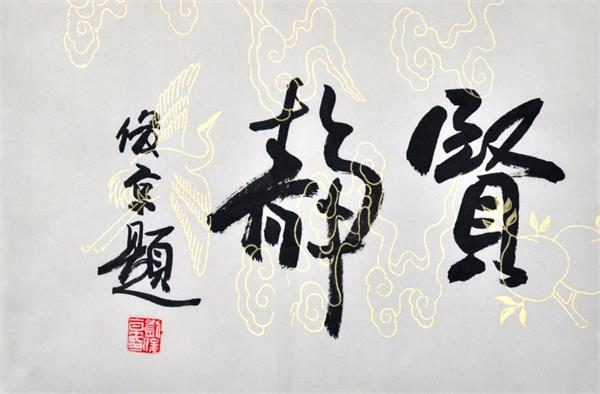 賢靜
俊京題